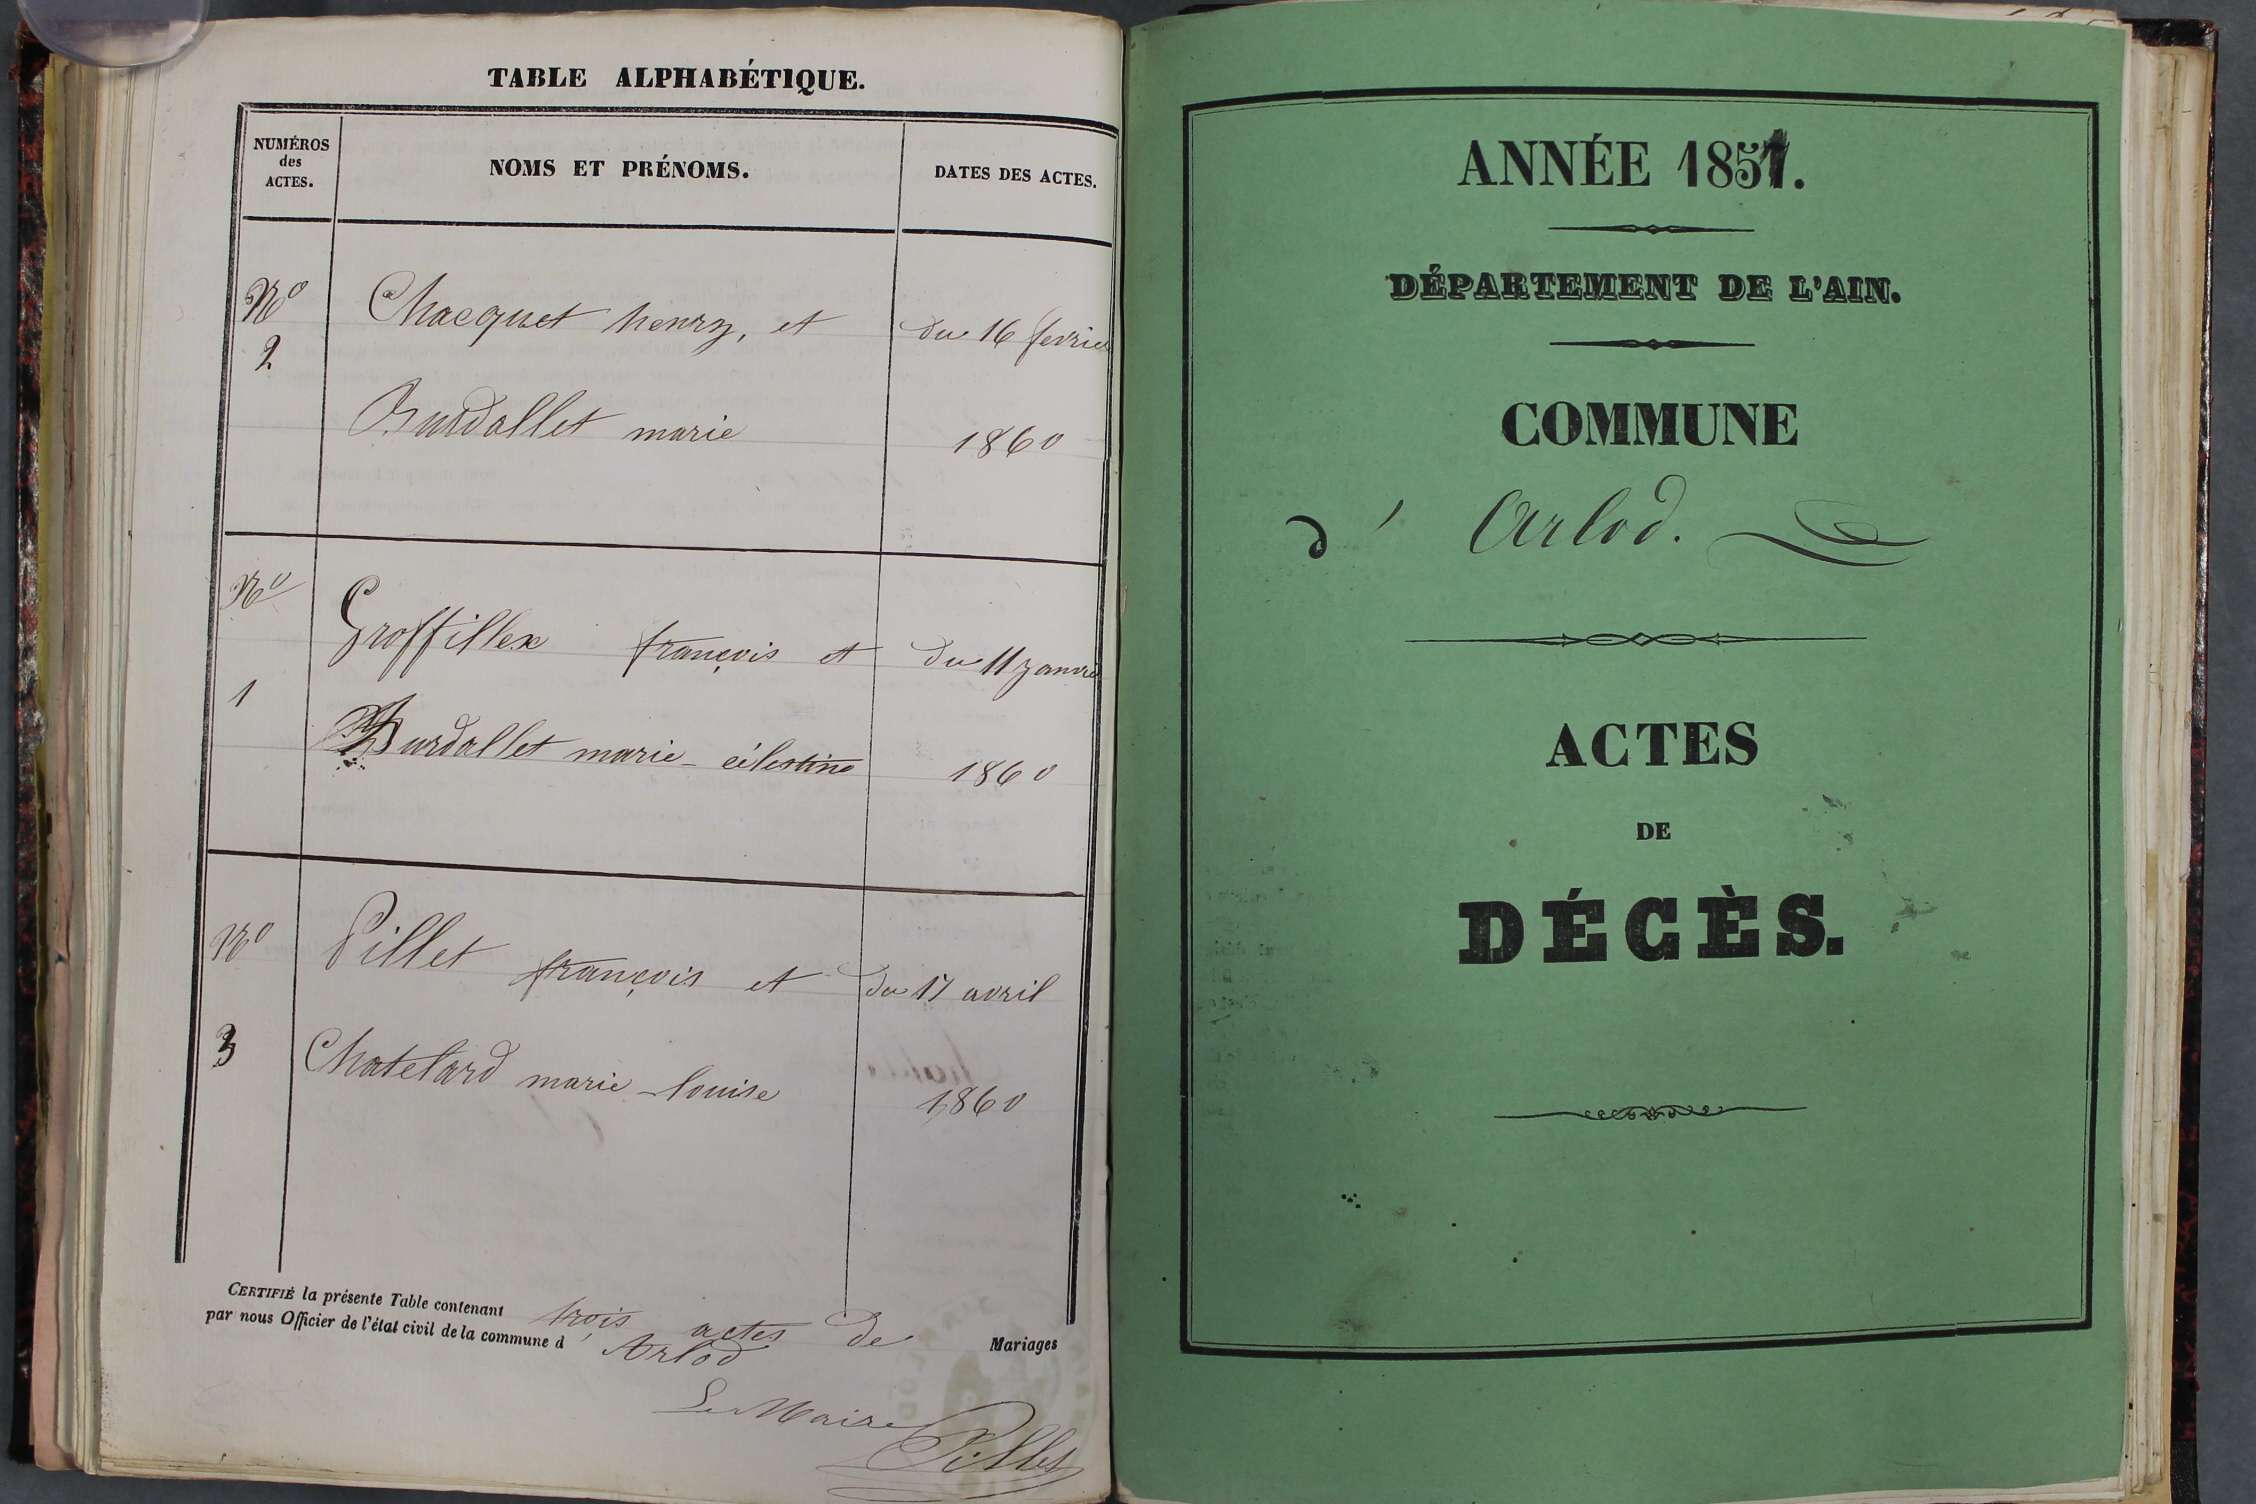 TABLE ALPHABÉTIQUE.
NUMÉROS
des
ACTES.
NOMS ET PRÉNOMS.
DATES DES ACTES.
No
Chacquet henry, et
du 16 fevrier
2
Burdallet marie
1860
No
Groffillex françois et
du 11 janvier
1
Burdallet marie-célestine
1860
No
Pillet françois et
du 17 avril
3
Chatelard marie-louise
1860
CERTIFIÉ la présente Table contenant trois actes de Mariages
par nous Officier de l'état civil de la commune d Arlod
Le Maire
Pillet
ANNÉE 1851.
DÉPARTEMENT DE L'AIN.
COMMUNE
d' Arlod.
ACTES
DE
DÉCÈS.